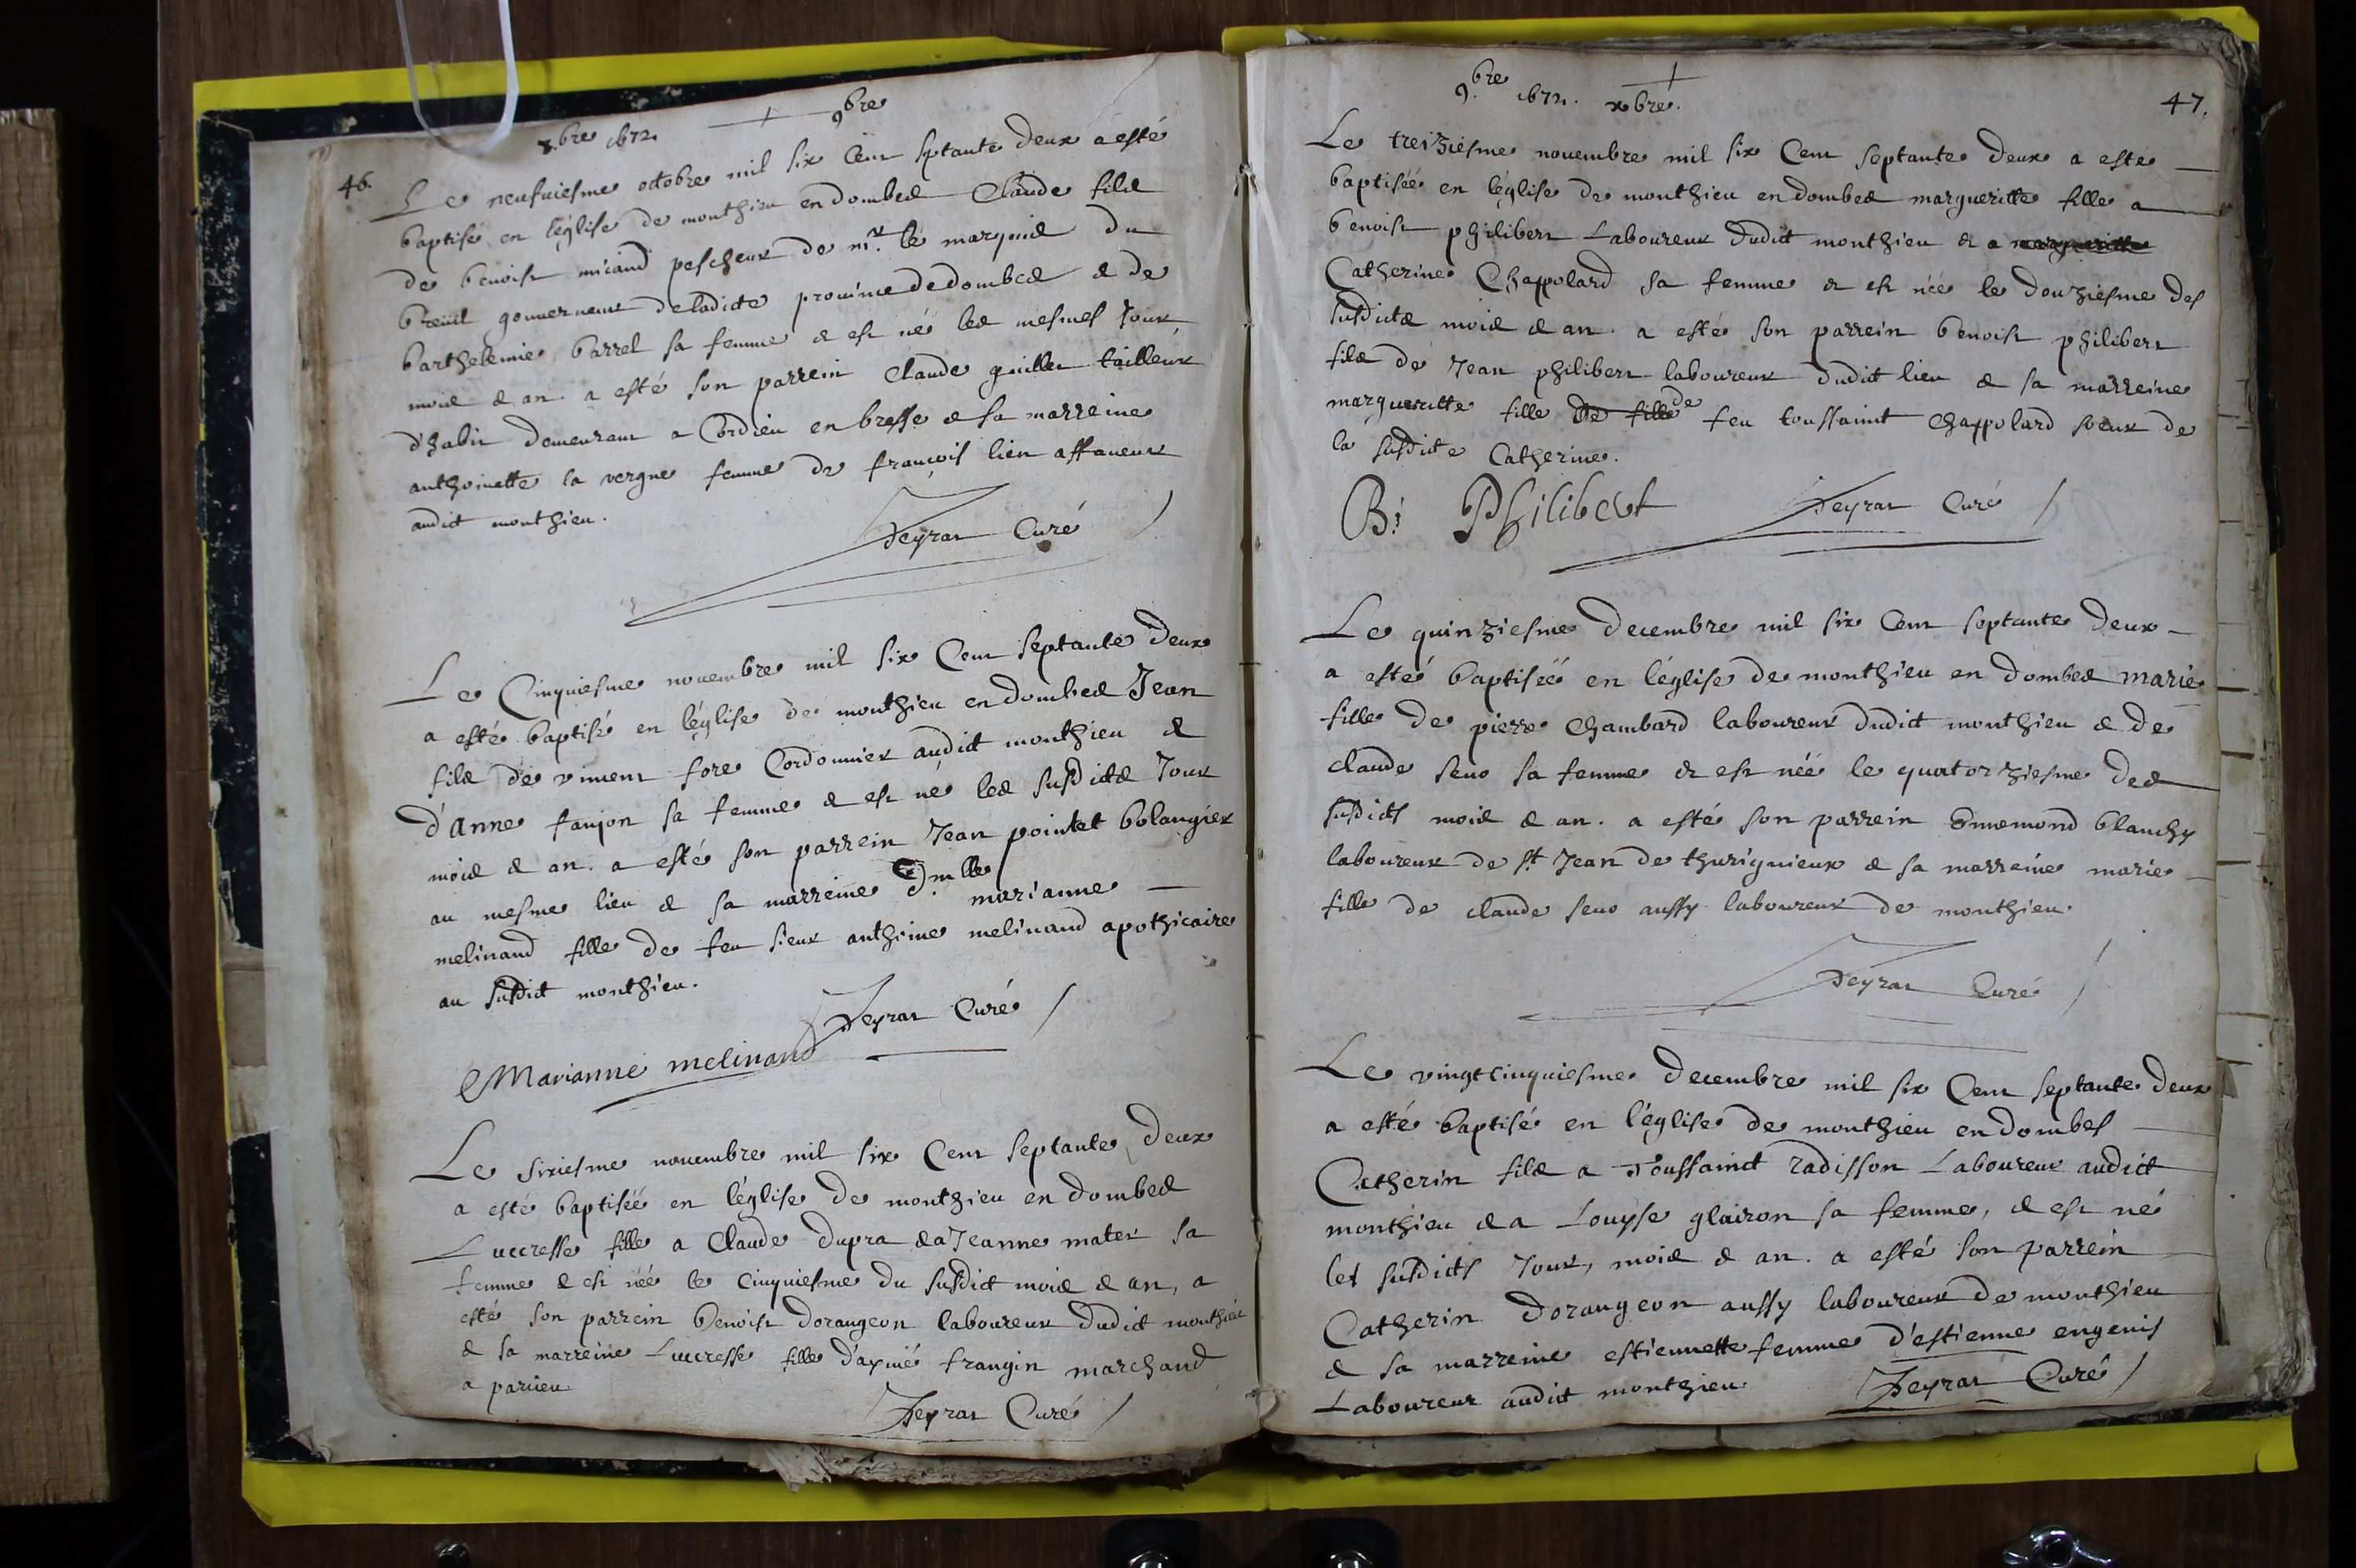 46.
8.bre 1672. 9bre
Le neufuiesme octobre mil six Cent septante deux a esté
baptisé en léglise de monthieu en dombes Claude fils
de benoist miciand pescheur de mr. le marquis du
breüil gouuerneur deladicte prouince dedombes & de
barthelemie barrel sa femme & est né les mesmes Jour
mois & an. a esté son parrein Claude guillet tailleur
d'habit demeurant a Cordieu en bresse & sa marreine
anthoinette la vergne femme de françois lien affaneur
audict monthieu.
Teyrat Curé
Le Cinquiesme nouembre mil six Cent septante deux
a esté baptisé en léglise de monthieu en dombes Jean
fils de vincent fore Cordonnier audict monthieu &
d'anne faujon sa femme & est né les susdicts Jour
mois & an. a esté son parrein Jean pointet bolangier
au mesme lieu & sa marreine D.mlle marianne
melinand fille de feu sieur anthoine melinand apothicaire
au susdict monthieu.
Teyrat Curé
Marianne melinand
Le sixiesme nouembre mil six Cent septante deux
a esté baptiséé en léglise de monthieu en dombes
Luccresse fille a Claude dupra & a Jeanne mater sa
femme & est néé le cinquiesme du susdict mois & an, a
esté son parrein benoist dorangeon laboureur dudict monthieu
& sa marreine Luccresse fille d'aymé frangin marchand
a parcieu
Teyrat Curé
9.bre 1672. xbre.
47.
Le treiziesme nouembre mil six Cent septante deux a esté
baptiséé en léglise de monthieu en dombes margueritte fille a
benoist philibert Laboureur dudict monthieu & a margueritte
Catherine Chappolard sa femme & est néé le douziesme des
susdicts mois & an. a esté son parrein benoist philibert
fils de Jean philibert laboureur dudict lieu & sa marreine
margueritte fille de fille de feu toussainct chappolard soeur de
la susdicte Catherine.
B: Philibert Teyrat Curé
Le quinziesme decembre mil six Cent septante deux
a esté baptiséé en léglise de monthieu en dombes marie
fille de pierre Chambard laboureur dudict monthieu & de
claude seuo sa femme & est néé le quatorziesme des
susdicts mois & an. a esté son parrein Ennemond blanchy
laboureur de st Jean de thurignieux & sa marreine marie
fille de claude seuo aussy laboureur de monthieu.
Teyrat Curé
Le vingtcinquiesme decembre mil six Cent septante deux
a esté baptisé en l'église de monthieu en dombes
Catherin fils a Toussainct radisson Laboureur audict
monthieu & a Louyse glairon sa femme, & est né
les susdicts Jour, mois & an. a esté son parrein
Catherin dorangeon aussy laboureur de monthieu
& sa marreine estiennette femme d'estienne engenis
Laboureur audict monthieu. Teyrat Curé